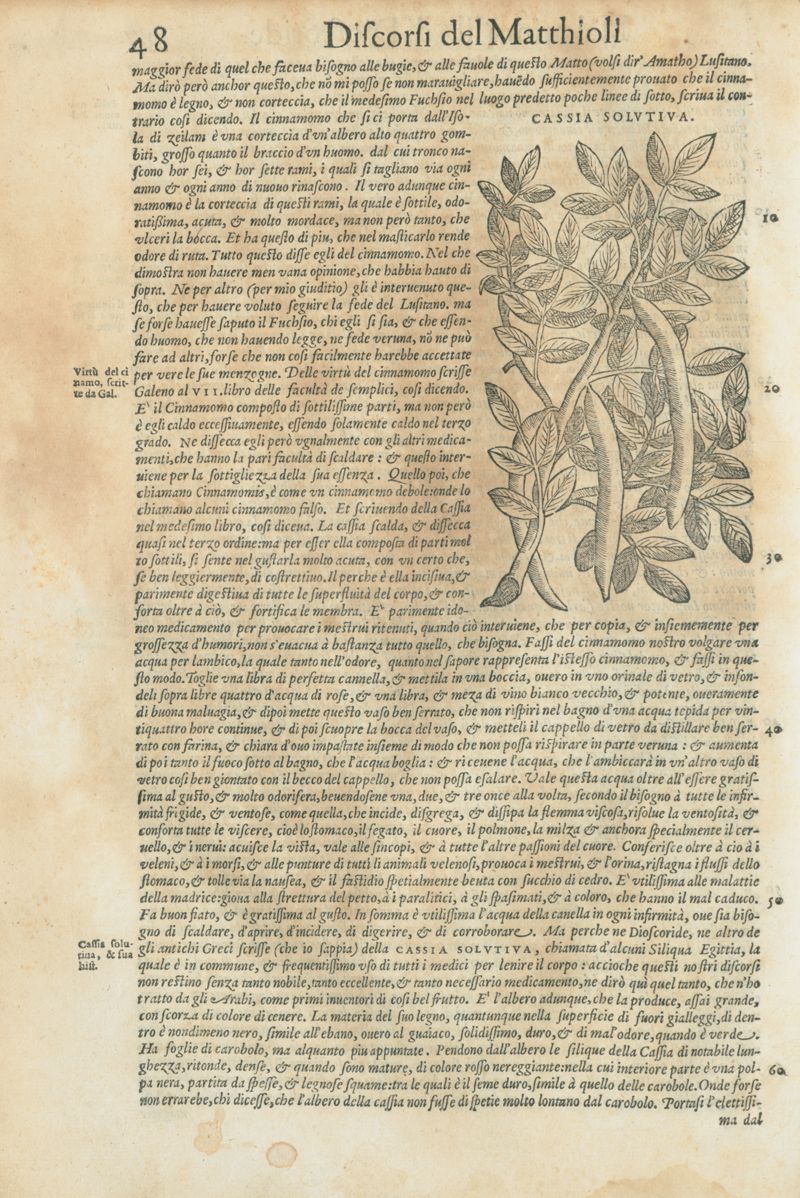 48 Diſcorſi del Matthioli
maggior fede di quel che faceua biſogno alle bugie, & alle fauole di queſto Matto (volſi dir' Amatho) Luſitano.
Ma dirò però anchor queſto, che nō mi poſſo ſe non marauigliare, hauēdo ſufficientemente prouato che il cinna-
momo è legno, & non corteccia, che il medeſimo Fuchſio nel luogo predetto poche linee di ſotto, ſcriua il con-
trario coſi dicendo. Il cinnamomo che ſi ci porta dall'Iſo-
CASSIA SOLVTIVA.
la di zeilam è vna corteccia d'vn'albero alto quattro gom-
biti, groſſo quanto il braccio d'vn huomo. dal cui tronco na-
ſcono hor ſei, & hor ſette rami, i quali ſi tagliano via ogni
anno & ogni anno di nuouo rinaſcono. Il vero adunque cin-
namomo è la corteccia di queſti rami, la quale è ſottile, odo-
ratißima, acuta, & molto mordace, ma non però tanto, che
10
vlceri la bocca. Et ha queſto di piu, che nel maſticarlo rende
odore di ruta. Tutto queſto diſſe egli del cinnamomo. Nel che
dimoſtra non hauere men vana opinione, che habbia hauto di
ſopra. Ne per altro (per mio giuditio) gli è interuenuto que-
ſto, che per hauere voluto ſeguire la fede del Luſitano. ma
ſe forſe haueſſe ſaputo il Fuchſio, chi egli ſi ſia, & che eſſen-
do huomo, che non hauendo legge, ne fede veruna, nō ne può
fare ad altri, forſe che non coſi facilmente harebbe accettate
per vere le ſue menzogne. Delle virtù del cinnamomo ſcriſſe
Virtù del ci
namo, ſcrit-
te da Gal.
Galeno al VII. libro delle facultà de ſemplici, coſi dicendo.
20
E' il Cinnamomo compoſto di ſottiliſſime parti, ma non però
è egli caldo ecceſſiuamente, eſſendo ſolamente caldo nel terzo
grado. Ne diſſecca egli però vgnalmente con gli altri medica-
menti, che hanno la pari facultà di ſcaldare: & queſto inter-
uiene per la ſottigliezza della ſua eſſenza. Quello poi, che
chiamano Cinnamomis, è come vn cinnamomo debole: onde lo
chiamano alcuni cinnamomo falſo. Et ſcriuendo della Caſſia
nel medeſimo libro, coſi diceua. La caſſia ſcalda, & diſſecca
quaſi nel terzo ordine: ma per eſſer ella compoſta di parti mol
to ſottili, ſi ſente nel guſtarla molto acuta, con vn certo che,
30
ſe ben leggiermente, di coſtrettiuo. Il perche è ella inciſiua, &
parimente digeſtiua di tutte le ſuperfluità del corpo, & con-
forta oltre à ciò, & fortifica le membra. E' parimente ido-
neo medicamento per prouocare i meſtrui ritenuti, quando ciò interuiene, che per copia, & inſiememente per
groſſezza d'humori, non s'euacua à baſtanza tutto quello, che biſogna. Faſſi del cinnamomo noſtro volgare vna
acqua per lambico, la quale tanto nell'odore, quanto nel ſapore rappreſenta l'iſteſſo cinnamomo, & faſſi in que-
ſto modo. Toglie vna libra di perfetta cannella, & mettila in vna boccia, ouero in vno orinale di vetro, & infon-
deli ſopra libre quattro d'acqua di roſe, & vna libra, & meza di vino bianco vecchio, & potente, oueramente
di buona maluagia, & dipoi mette queſto vaſo ben ſerrato, che non riſpiri nel bagno d'vna acqua tepida per vin-
tiquattro hore continue, & di poi ſcuopre la bocca del vaſo, & metteli il cappello di vetro da diſtillare ben ſer-
40
rato con farina, & chiara d'ouo impaſtate inſieme di modo che non poſſa riſpirare in parte veruna: & aumenta
di poi tanto il fuoco ſotto al bagno, che l'acqua boglia: & riceuene l'acqua, che l'ambiccarà in vn'altro vaſo di
vetro coſi ben giontato con il becco del cappello, che non poſſa eſalare. Vale queſta acqua oltre all'eſſere gratiſ-
ſima al guſto, & molto odorifera, beuendoſene vna, due, & tre once alla volta, ſecondo il biſogno à tutte le infir-
mità frigide, & ventoſe, come quella, che incide, diſgrega, & diſſipa la flemma viſcoſa, riſolue la ventoſità, &
conforta tutte le viſcere, cioè lo ſtomaco, il fegato, il cuore, il polmone, la milza & anchora ſpecialmente il cer-
uello, & i nerui: acuiſce la viſta, vale alle ſincopi, & à tutte l'altre paſſioni del cuore. Conferiſce oltre à ciò à i
veleni, & à i morſi, & alle punture di tutti li animali velenoſi, prouoca i meſtrui, & l'orina, riſtagna i fluſſi dello
ſtomaco, & tolle via la nauſea, & il faſtidio ſpetialmente beuta con ſucchio di cedro. E' vtiliſſima alle malattie
della madrice: gioua alla ſtrettura del petto, à i paralitici, à gli ſpaſimati, & à coloro, che hanno il mal caduco.
50
Fa buon fiato, & è gratiſſima al guſto. In ſomma è vtiliſſima l'acqua della canella in ogni infirmità, oue ſia biſo-
gno di ſcaldare, d'aprire, d'incidere, di digerire, & di corroborare. Ma perche ne Dioſcoride, ne altro de
Caſſia ſolu-
tiua, & ſua
hiſt.
gli antichi Greci ſcriſſe (che io ſappia) della CASSIA SOLVTIVA, chiamata d'alcuni Siliqua Egittia, la
quale è in commune, & frequentiſſimo vſo di tutti i medici per lenire il corpo: accioche queſti noſtri diſcorſi
non reſtino ſenza tanto nobile, tanto eccellente, & tanto neceſſario medicamento, ne dirò quì quel tanto, che n'ho
tratto da gli Arabi, come primi inuentori di coſi bel frutto. E' l'albero adunque, che la produce, aſſai grande,
con ſcorza di colore di cenere. La materia del ſuo legno, quantunque nella ſuperficie di fuori gialleggi, di den-
tro è nondimeno nero, ſimile all'ebano, ouero al guaiaco, ſolidiſſimo, duro, & di mal'odore, quando è verde.
Ha foglie di carobolo, ma alquanto piu appuntate. Pendono dall'albero le ſilique della Caſſia di notabile lun-
ghezza, ritonde, denſe, & quando ſono mature, di colore roſſo nereggiante: nella cui interiore parte è vna pol-
60
pa nera, partita da ſpeſſe, & legnoſe ſquame: tra le quali è il ſeme duro, ſimile à quello delle carobole. Onde forſe
non errarebe, chi diceſſe, che l'albero della caſſia non fuſſe di ſpetie molto lontano dal carobolo. Portaſi l'elettiſſi-
ma dal